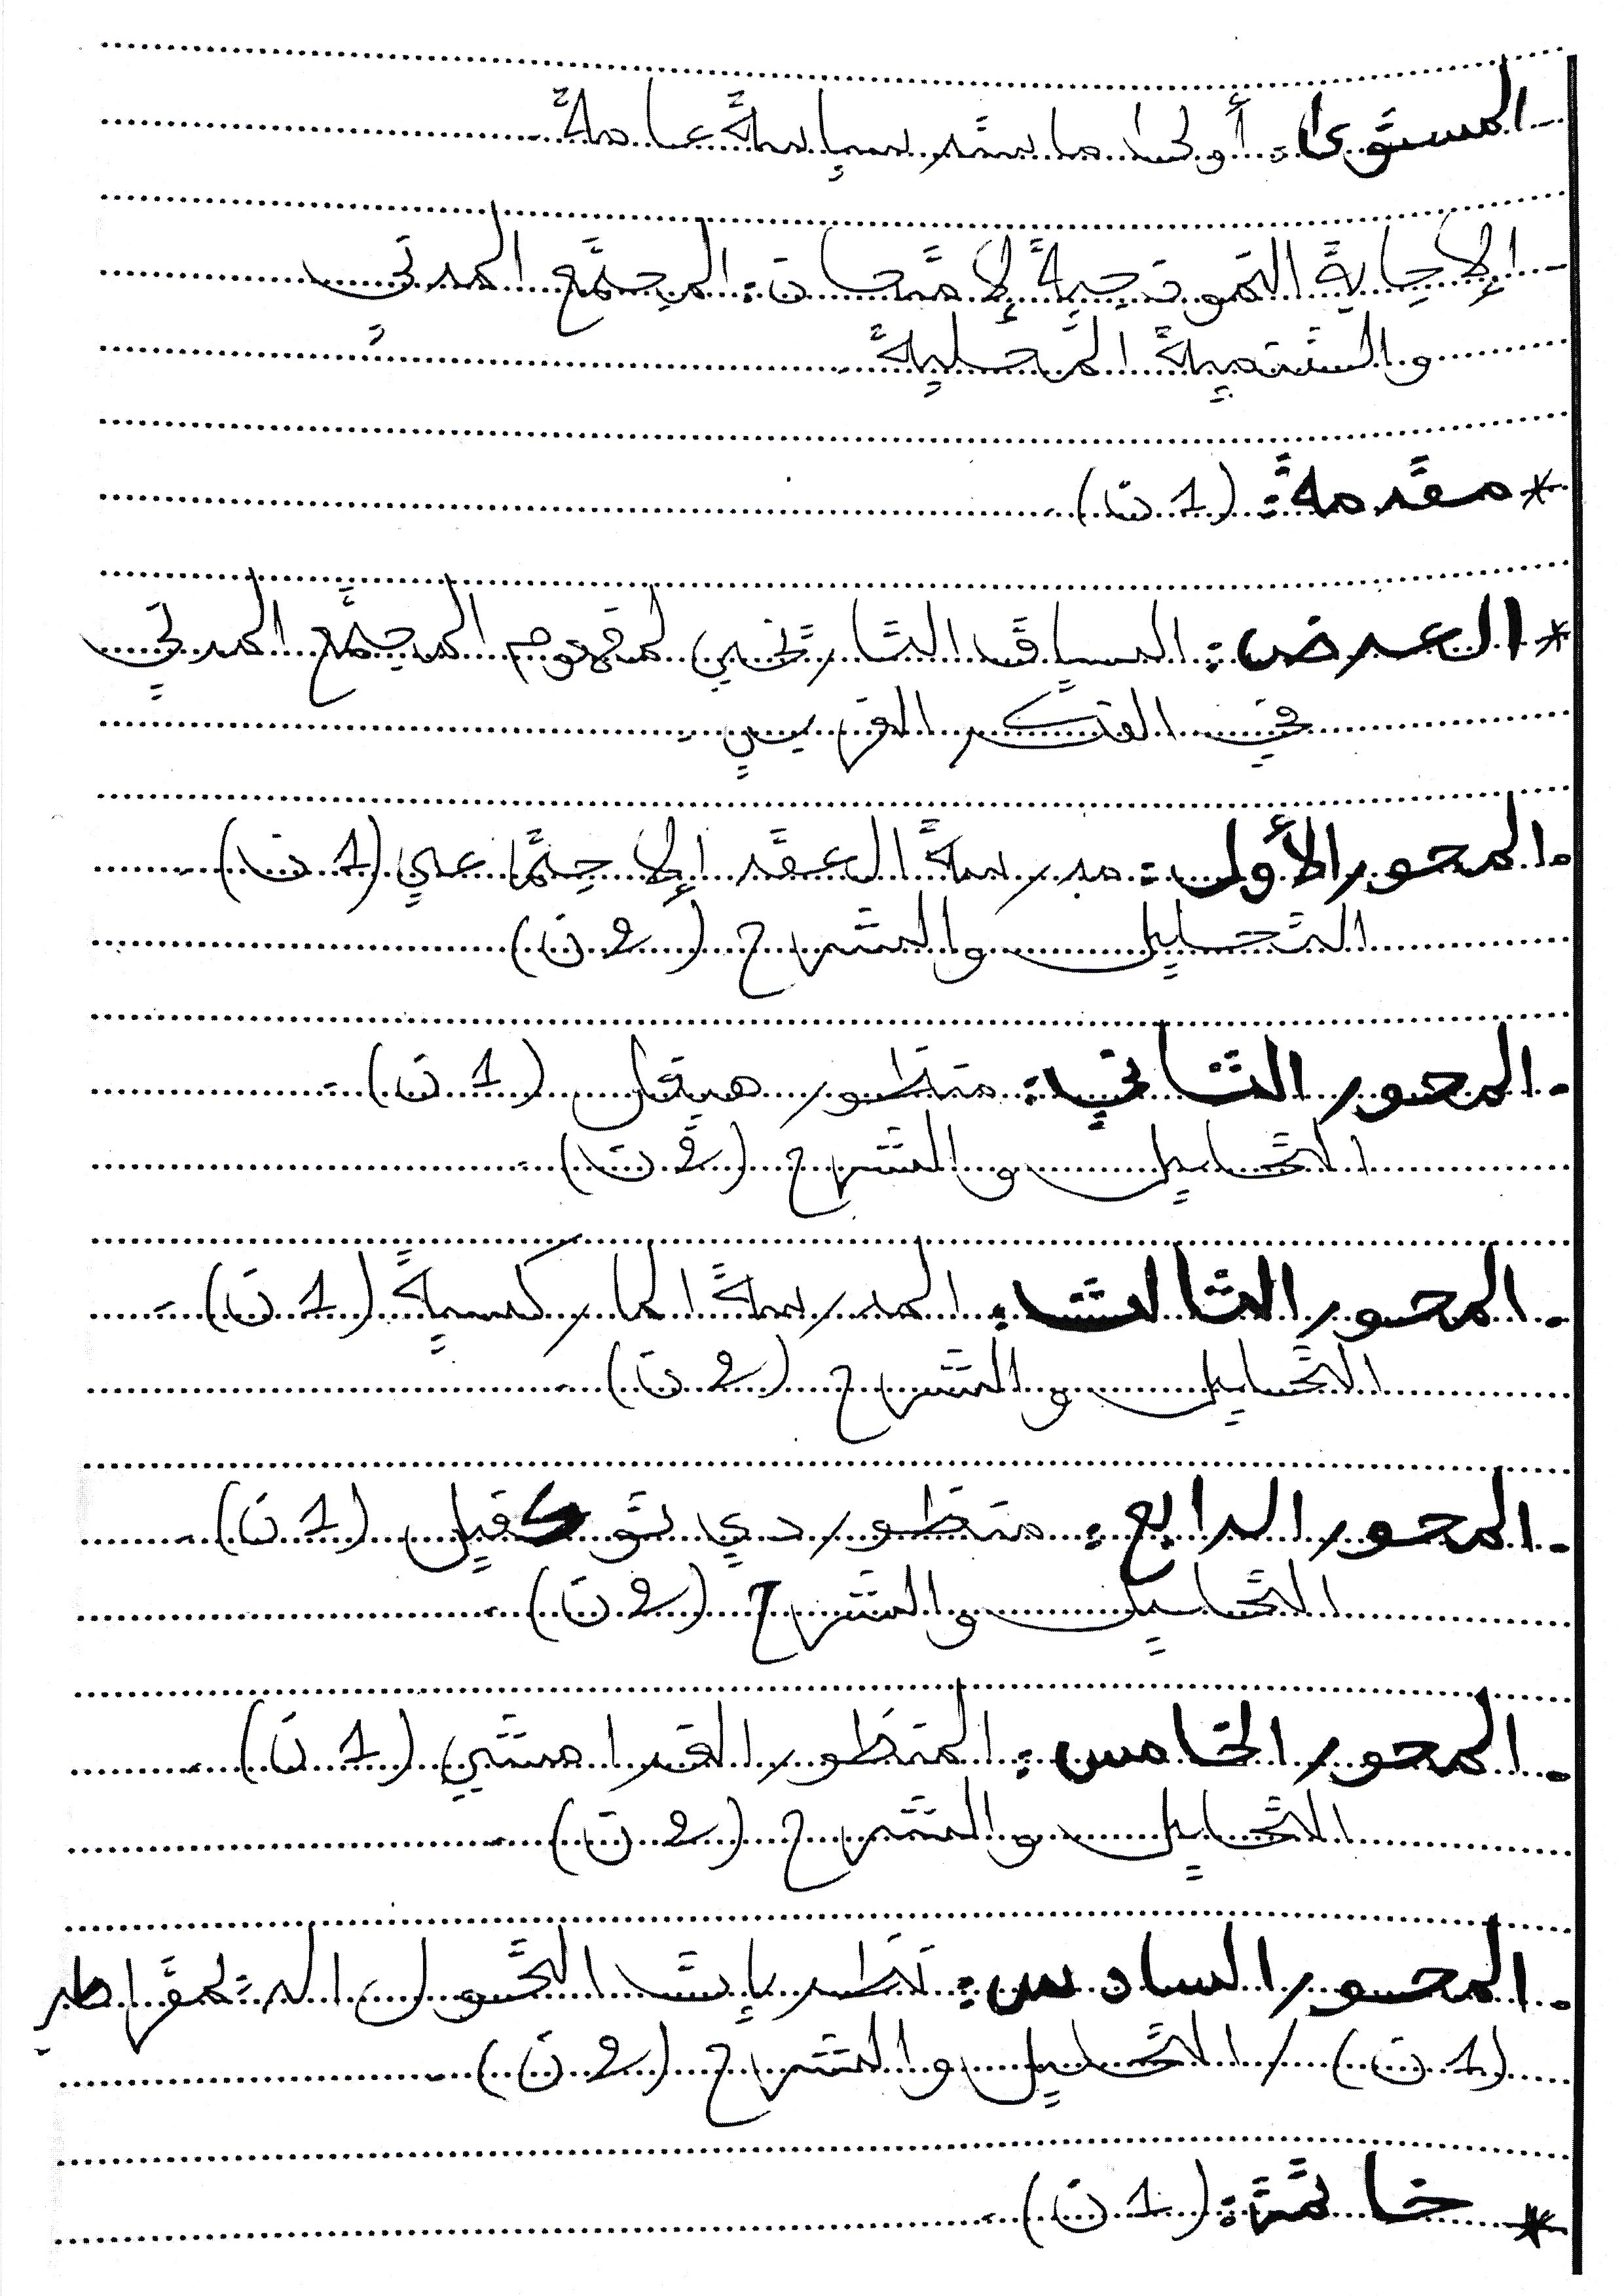 - المستوى: أولى ماستر سياسة عامة.
- الإجابة النموذجية لإمتحان: المجتمع المدني
والتنمية المحلية.
* مقدمة: (1 ن).
* العرض: السياق التاريخي لمفهوم المجتمع المدني
في الفكر الغربي.
- المحور الأول: مدرسة العقد الإجتماعي (1 ن).
التحليل والشرح (2 ن).
- المحور الثاني: منظور هيقل (1 ن).
التحليل والشرح (2 ن).
- المحور الثالث: المدرسة الماركسية (1 ن).
التحليل والشرح (2 ن).
- المحور الرابع: منظور دي توكفيل (1 ن).
التحليل والشرح (2 ن).
- المحور الخامس: المنظور الغرامشي (1 ن).
التحليل والشرح (2 ن).
- المحور السادس: نظريات التحول الديمقراطي
(1 ن) / التحليل والشرح (2 ن).
* خاتمة: (1 ن).